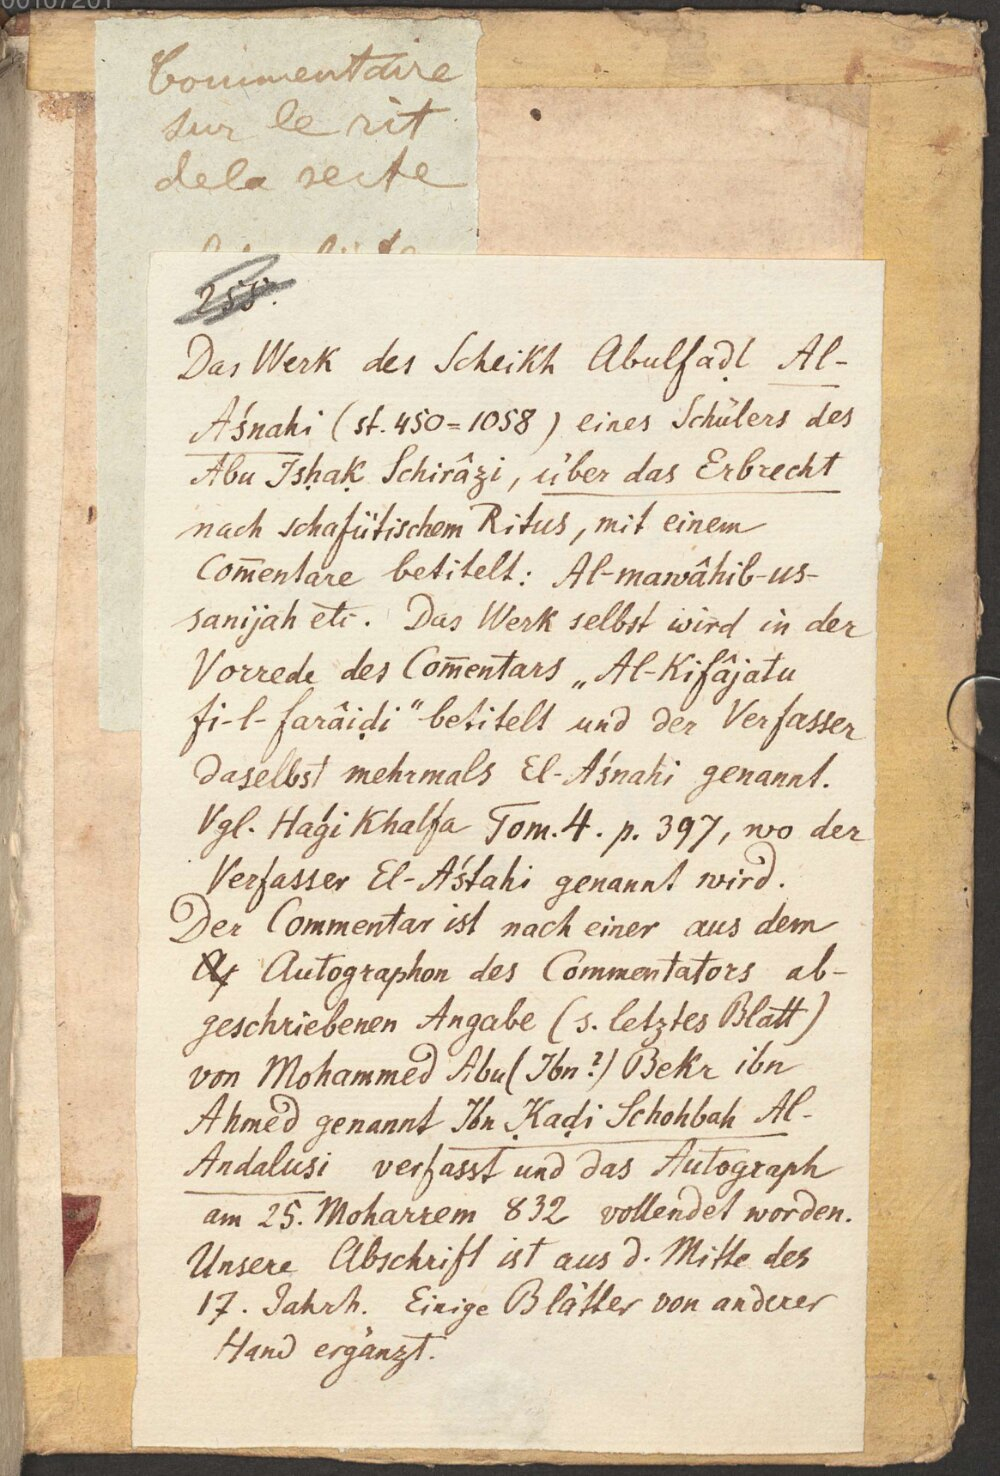 Commentaire
sur le rit
dela secte
255.
Das Werk des Scheikh Abulfaḍl Al-
Aśnahi (st. 450=1058) eines Schülers des
Abu Isḥaḳ Schirâzi, über das Erbrecht
nach schafiitischem Ritus, mit einem
Com̄entare betitelt: Al-mawâhib-us-
sanijah etc. Das Werk selbst wird in der
Vorrede des Com̄entars „Al-Kifâjatu
fi-l-farâiḍi" betitelt und der Verfasser
daselbst mehrmals El-Aśnahi genannt.
Vgl. Haǵi Khalfa Tom. 4. p. 397, wo der
Verfasser El-Aśtahi genannt wird.
Der Commentar ist nach einer aus dem
Autographon des Commentators ab-
geschriebenen Angabe (s. letztes Blatt)
von Mohammed Abu (Ibn?) Bekr ibn
Ahmed genannt Ibn Ḳaḍi Schohbah Al-
Andalusi verfasst und das Autograph
am 25. Moharrem 832 vollendet worden.
Unsere Abschrift ist aus d. Mitte des
17. Jahrh. Einige Blätter von anderer
Hand ergänzt.